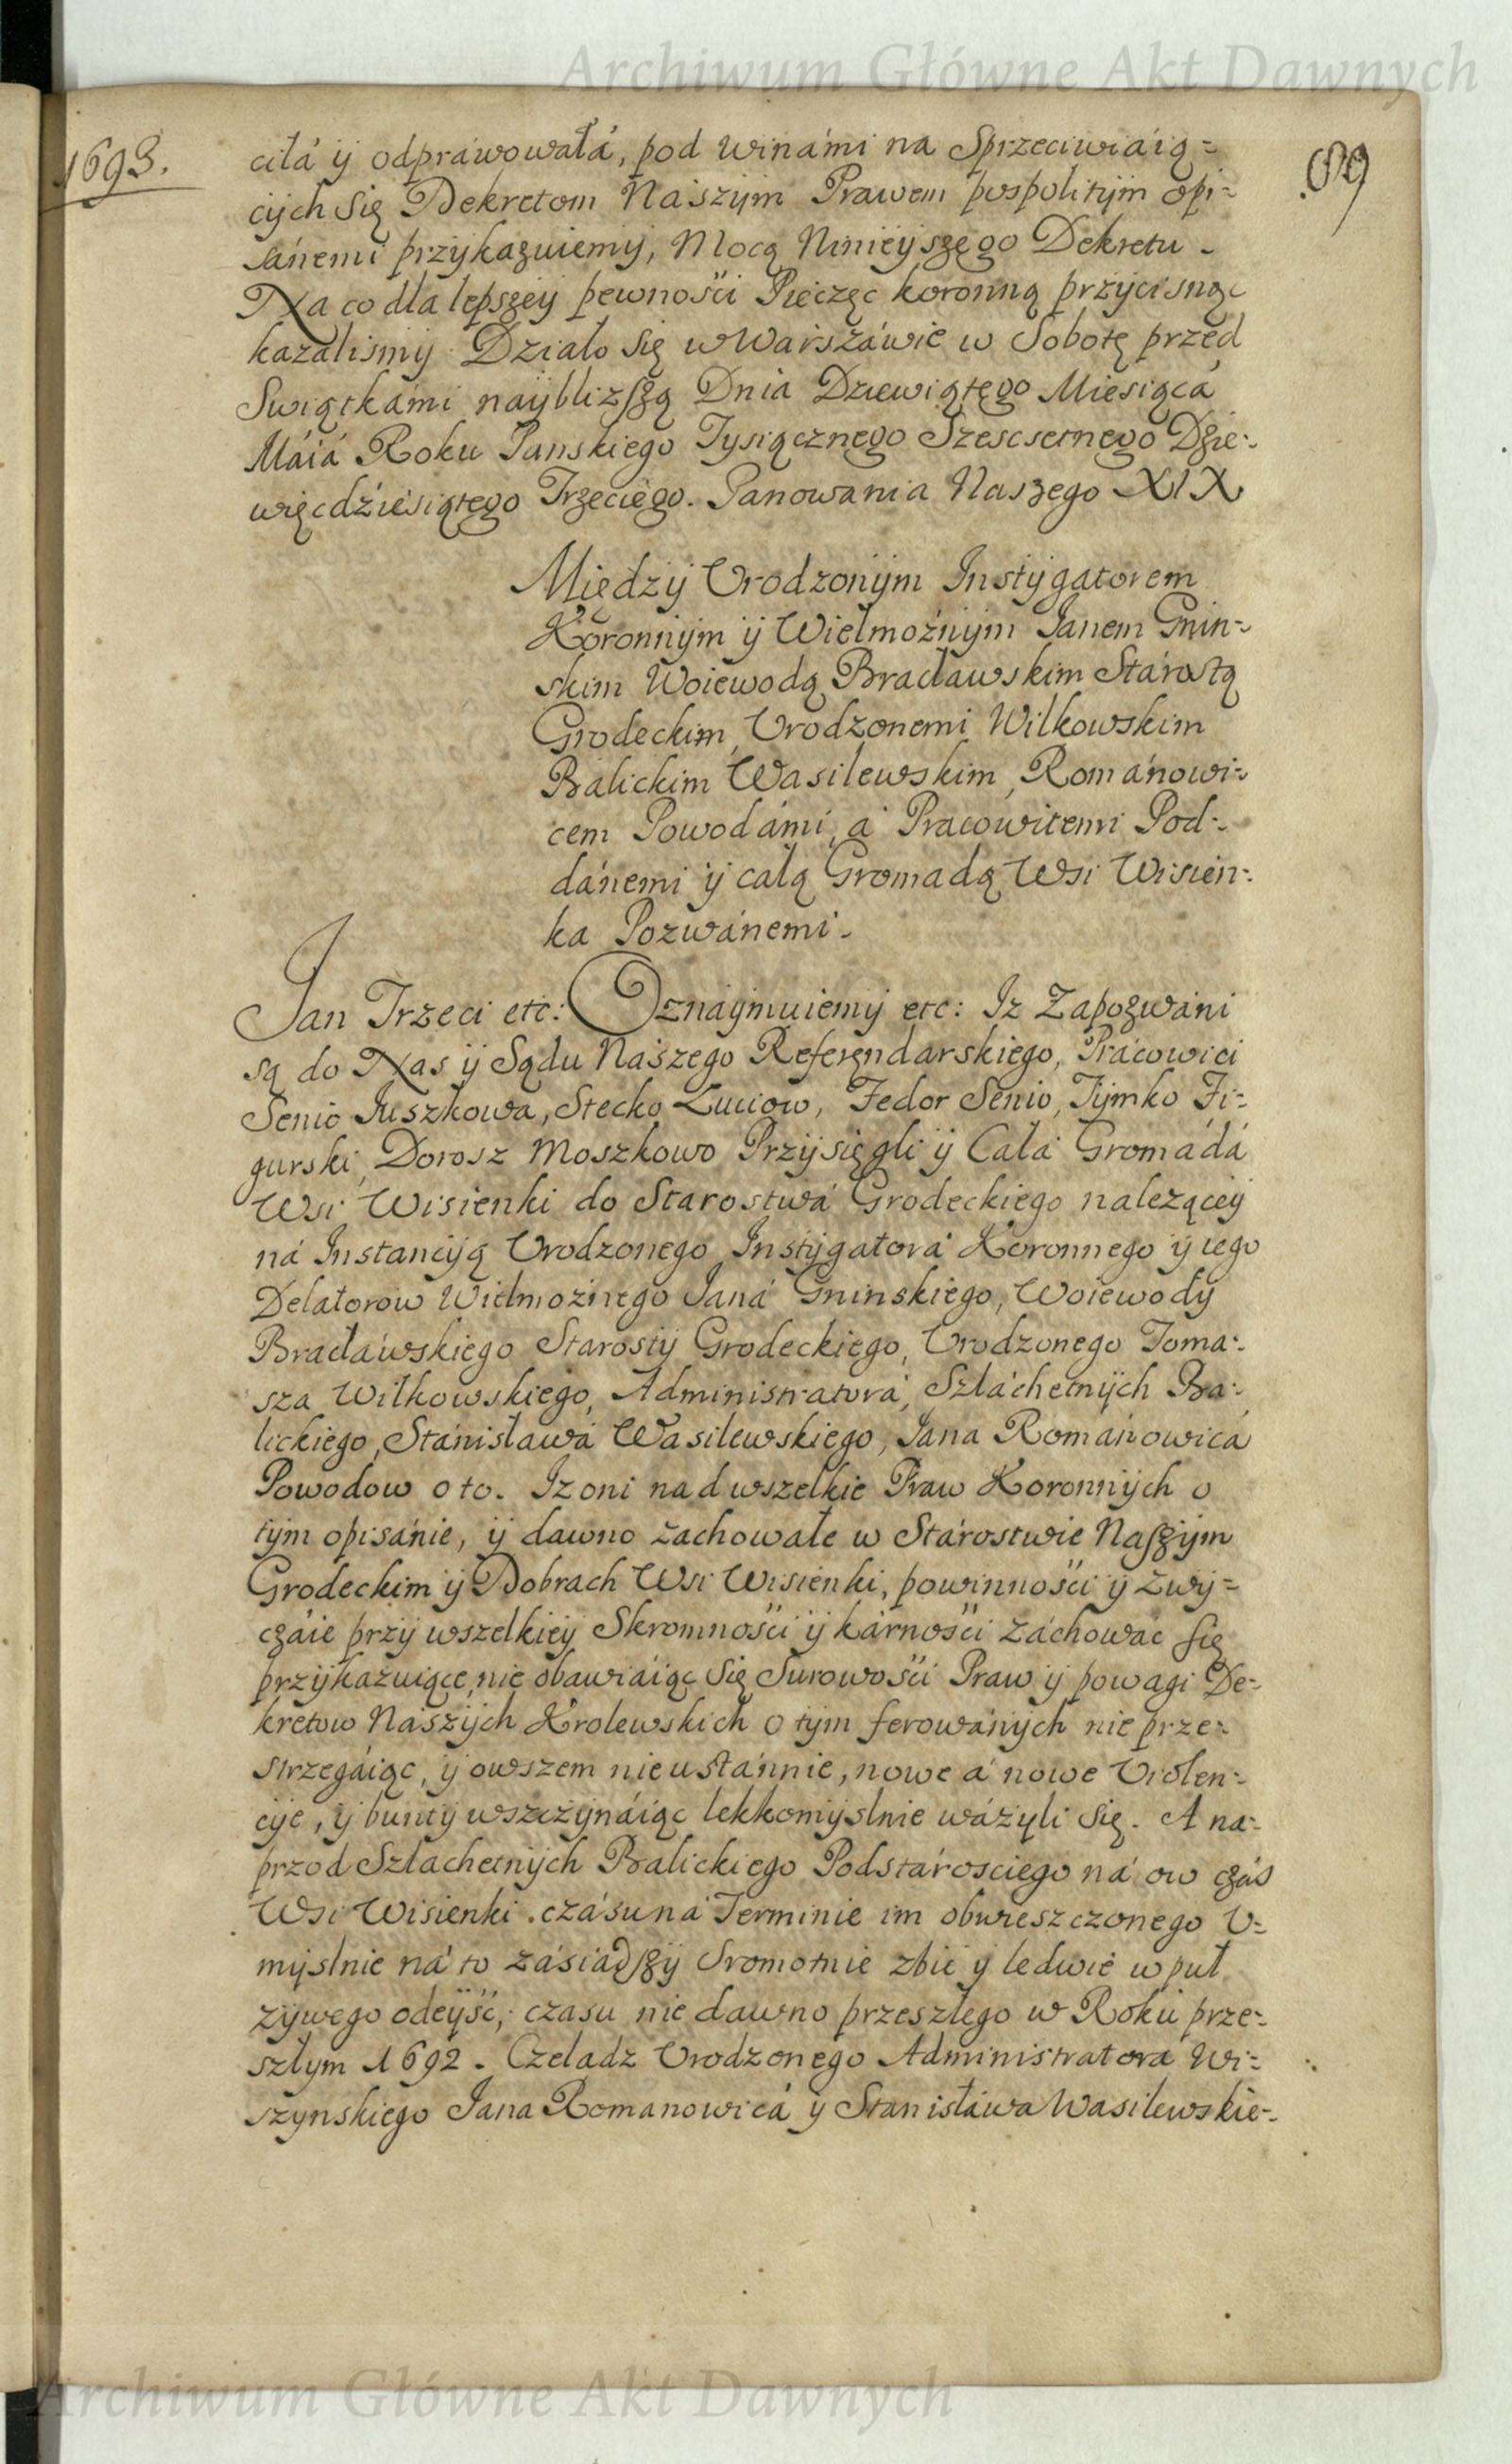 Archiwum Główne Akt Dawnych
1693.
69
ciłá ÿ odpráwowáłá, pod winámi na Sprzeciwiáią=
cÿch Się Dekretom Nászÿm Prawem pospolitÿm opi=
sánemi przÿkazuiemÿ, Mocą Ninieÿszego Dekretu.
Na co dla lepszeÿ pewności Pieczęc koronną przÿcisnąc
kazalismÿ. Działo Się w Warszáwie w Sobotę przed
Swiątkámi naÿblizszą Dnia Dziewiątego Miesiącá
Máiá Roku Panskiego Tysiącznego Szescsetnego Dzie=
więcdziesiątego Trzeciego. Panowania Naszego XIX
Międzÿ Urodzonÿm Instÿgatorem
Koronnÿm ÿ Wielmożnÿm Janem Gnin=
skim Woiewodą Bracławskim Stárostą
Grodeckim, Urodzonemi Wilkowskim
Balickim Wasilewskim, Románowi=
cem Powodámi, á Pracowitemi Pod=
dánemi ÿ całą Gromadą Wsi Wisien=
ka Pozwánemi.
Jan Trzeci etc: Oznáÿmuiemÿ etc: Iz Zapozwáni
są do Nas ÿ Sądu Nászego Referendarskiego, Prácowici
Senio Juszkowa, Stecko Luciow, Fedor Senio, Tÿmko Fi=
gurski, Dorosz Moszkowo Przÿsięgli ÿ Całá Gromádá
Wsi Wisienki do Starostwá Grodeckiego należąceÿ
ná Instancÿą Urodzonego Instÿgatorá Koronnego ÿ iego
Delatorow Wielmożnego Janá Gninskiego, Woiewodÿ
Bracłáwskiego Starostÿ Grodeckiego, Urodzonego Toma=
sza Wilkowskiego, Administratorá, Szláchetnÿch Ba=
lickiego, Stánisławá Wasilewskiego, Jana Románowicá
Powodow o to. Iz oni nad wszelkie Praw Koronnÿch o
tÿm opisánie, ÿ dawno zachowałe w Stárostwie Naszÿm
Grodeckim ÿ Dobrach Wsi Wisienki, powinności ÿ zwÿ=
czáie przÿ wszelkieÿ Skromności ÿ kárności záchowác się
przÿkazuiące, nie obawiáiąc Się Surowości Praw ÿ powagi De=
kretow Nászÿch Krolewskich o tÿm ferowánÿch nie prze=
strzegáiąc, ÿ owszem nieustánnie, nowe á nowe Violen=
cÿe, ÿ buntÿ wszczÿnáiąc lekkomÿslnie wáżÿli Się. A na=
przod Szlachetnÿch Balickiego Podstárosciego ná ow czás
Wsi Wisienki. czásu ná Terminie im obwieszczonego U=
mÿslnie ná to zásiádszÿ Sromotnie zbić ÿ ledwie w puł
zÿwego odeÿść, czasu nie dawno przeszłego w Roku prze=
szłym 1692. Czeladz Urodzonego Administratora Wi=
szynskiego Jana Romanowicá ÿ Stanisława Wasilewskie=
Archiwum Główne Akt Dawnych